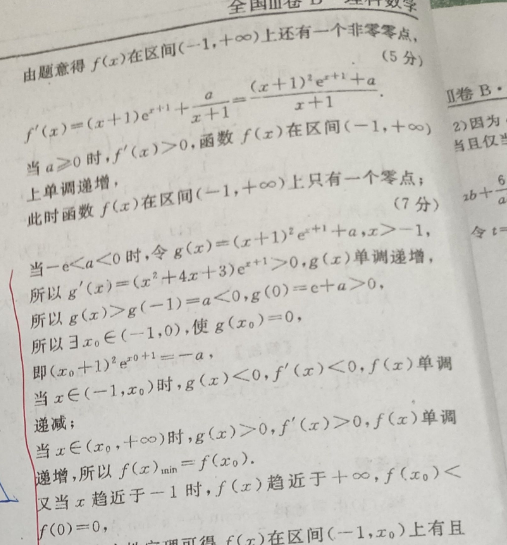 全国Ⅲ卷 B· 理科数学
由题意得 f(x)在区间(-1,+∞)上还有一个非零零点,
(5 分)
f′(x)=(x+1)e^{x+1}+\frac{a}{x+1}=\frac{(x+1)^2e^{x+1}+a}{x+1}.
当 a≥0 时,f′(x)>0,函数 f(x)在区间(-1,+∞)
上单调递增,
此时函数 f(x)在区间(-1,+∞)上只有一个零点;
(7 分)
当-e<a<0 时,令 g(x)=(x+1)^2e^{x+1}+a,x>-1,
所以 g′(x)=(x^2+4x+3)e^{x+1}>0,g(x)单调递增,
所以 g(x)>g(-1)=a<0,g(0)=e+a>0,
所以∃x_0∈(-1,0),使 g(x_0)=0,
即(x_0+1)^2e^{x_0+1}=-a,
当 x∈(-1,x_0)时,g(x)<0,f′(x)<0,f(x)单调
递减;
当 x∈(x_0,+∞)时,g(x)>0,f′(x)>0,f(x)单调
递增,所以 f(x)_{min}=f(x_0).
又当 x 趋近于-1 时,f(x)趋近于+∞,f(x_0)<
f(0)=0,
定理可得 f(x)在区间(-1,x_0)上有且
Ⅱ卷 B·
2)因为
当且仅当
2b+\frac{6}{a}
令 t=